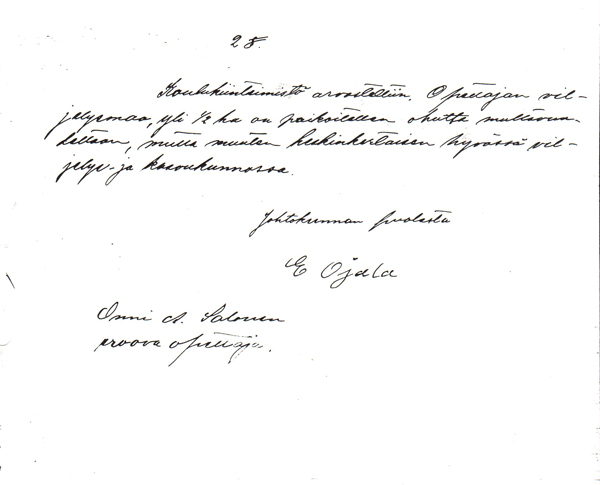 2 §.
Koulukiinteimistö arvosteltiin. Opettajan vil-
jelysmaa, yli 1/2 ha on paikoitellen ohutta multavuu-
deltaan, mutta muuten keskinkertaisen hyvässä vil-
jelys- ja kasvukunnossa.
Johtokunnan puolesta
E Ojala
Onni A. Salonen
eroava opettaja.